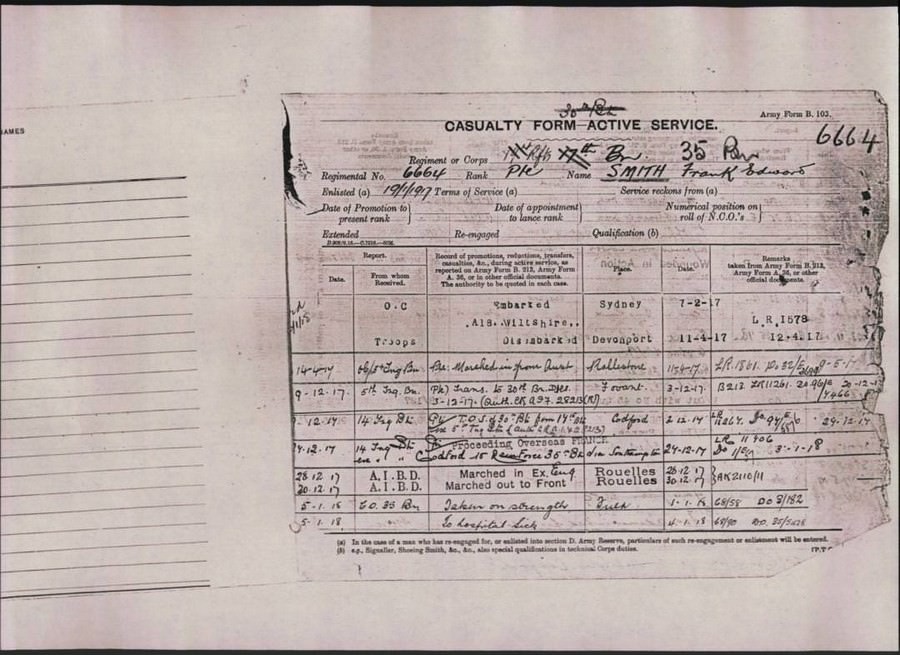 NAMES
30th Bn
Army Form B. 103.
CASUALTY FORM—ACTIVE SERVICE.
6664
Regiment or Corps 17th Bn. 35 Bn
Regimental No. 6664 Rank Pte Name SMITH Frank Edward
Enlisted (a) 19/1/1917 Terms of Service (a) Service reckons from (a)
Date of Promotion to present rank Date of appointment to lance rank Numerical position on roll of N.C.O.'s
Extended Re-engaged Qualification (b)
Report. Record of promotions, reductions, transfers, casualties, &c., during active service, as reported on Army Form B. 213, Army Form A. 36, or in other official documents. The authority to be quoted in each case. Place. Date. Remarks taken from Army Form B. 213, Army Form A. 36, or other official documents.
Date. From whom Received.
O.C Embarked Sydney 7-2-17
A18. Wiltshire. L.R.1578
Troops Disembarked Devonport 11-4-17 12-4.17
14-4-17 Trg Bn Marched in from Aust Rollestone 11-4-17 LR.1861. 9-5-17
9-12-17. 5th Trg. Bn. Trans. to 30th Bn. Fovant. 3-12-17. B213. LR11261. 20-12-17
3-12-17.
9-12-17 14 Trg Bn T.O.S. from Codford 2 12.17 29-12-17
LR 11906
24-12.17 14 Trg Bn Proceeding Overseas FRANCE
Codford to 35th Bn Southampton 24-12-17 3-1-18
28 12 17 A.I.B.D. Marched in Ex. Eng Rouelles 28 12 17
30.12.17 A.I.B.D. Marched out to Front Rouelles 30 12 17 AK2110/11
5-1.18 C.O. 35 Bn Taken on strength Field 1-1.18 68/58 DO 3/182
5-1.18. To hospital Sick 4-1.18
(a) In the case of a man who has re-engaged for, or enlisted into section D. Army Reserve, particulars of such re-engagement or enlistment will be entered.
(b) e.g., Signaller, Shoeing Smith, &c., &c., also special qualifications in technical Corps duties.
[P.T.O